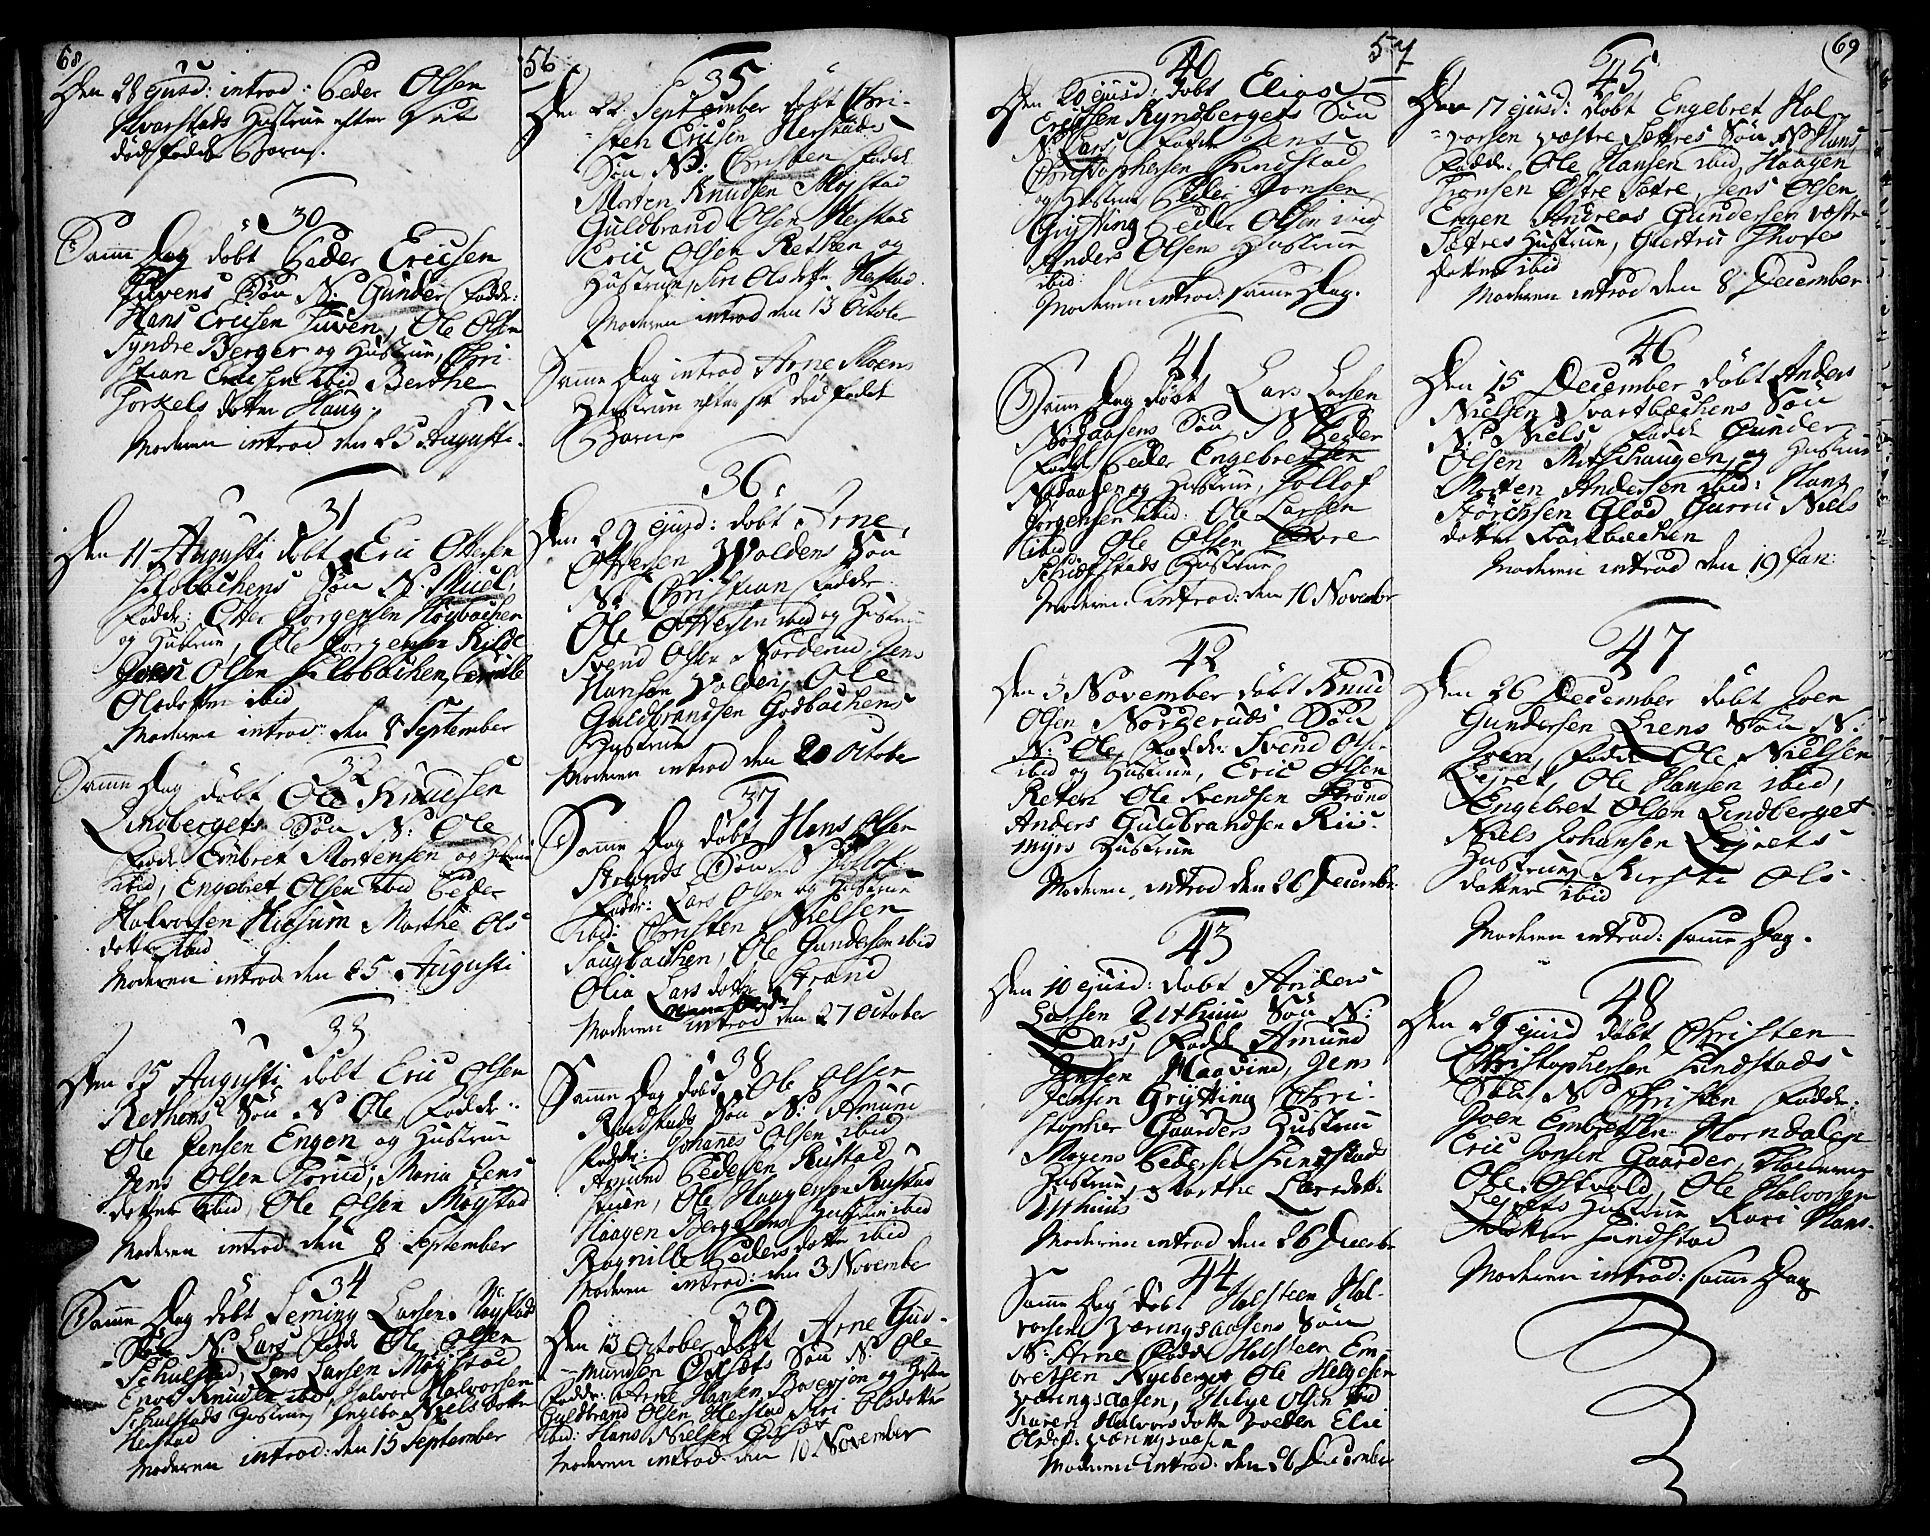 68
Den 28 ejusd: introd: Peder Olsen
Kvarstads Hustrue efter sit
dødfødde Barn.
30
Samme Dag døbt Peder Ericsen
Tuvens Søn N: Gunder, Fadde:
Hans Ericsen Tuven, Ole Olsen
Syndre Berger og Hustrue, Chri-
stian Ericsen ibid Berthe
Torkels datter Haug.
Moderen introd den 25 Augusti.
31
Den 11 Augusti døbt Eric Ottersen
Søn N.
Fadde: Otter Jørgensen
og Hustrue, Ole Jørgensen
Joen Olsen
Olsdatter ibid
Moderen introd: den 8 September
32
Samme Dag døbt Ole Knudsen
Lindbergets Søn N: Ole
Fadde: Embret Mortensen og Hustrue
ibid, Engebret Olsen ibid Peder
Halvorsen Marthe Ols
datter ibid
Moderen introd den 25 Augusti
33
Den 25 Augusti døbt Eric Olsen
Rethens Søn N Ole, Fadde:
Ole Jensen Engen og Hustrue
Jens Olsen Maria Jens
datter ibid, Ole Olsen Møystad
Moderen introd: den 8 September
34
Samme Dag døbt Seming Larsen Møystads
Søn N. Lars Fadde Ole Olsen
Schulstad, Lars Larsen Møistad
Knudsen ibid, Halvor Halvorsen
Schulstads Hustrue, Ingebor Niels datter
Herstad
Moderen introd: den 15 September
56
35
Den 22 September døbt Chri-
sten Ericsen Herstads
Søn N: Christen Fadde
Morten Knudsen Møjstad
Guldbrand Olsen Herstad
Eric Olsen Rethen og
Hustrue, Siri Olsdatter Herstad.
Moderen introd den 13 October
Samme Dag introd Arne Moens
Hustrue efter sit dødfødt
Barn
36
Den 29 ejusd: døbt Arne
Ottersen Woldens Søn
N: Christian, Fadde:
Ole Ottersen ibid og Hustrue
Svend Olsen Norderud, Jens
Hansen Volden, Ole
Guldbrandsen Godbachens
Hustrue
Moderen introd den 20 October
37
Samme Dag døbt Hans Olsen
Strands Søn N Tollof
Fadde: Lars Olsen og Hustrue
ibid: Christen Nielsen
Saugbachen, Ole Gundersen ibid
Olia Lars datter Strand
Moderen introd den 27 October
38
Samme Dag døbt Ole Olsen
Rudstads Søn N: Amund
Fadde: Johannes Olsen ibid
Amund Pedersen Rustad
Ole Haagensen Rustad
Haagen Hustrue ibid
Ragnille Peders datter ibid
Moderen introd: den 3 November
39
Den 13 October døbt Arne Gud-
mundsen Søn N: Ole
Fadde: Arne Hansen og Hustrue
Guldbrand Olsen Herstad, Siri Olsdatter
ibid: Hans Nielsen
Moderen introd: den 10 November
57
40
Den 20 ejusd: døbt Elias
Ericsen Kyndbergets Søn
N: Lars, Fadde Jens
Christophersen Findstad
og Hustrue Peder Jonsen
Grytting Peder Olsen ibid
Anders Olsens Hustrue
ibid:
Moderen introd: samme Dag.
41
Samme Dag døbt Lars Larsen
Nødaasens Søn N Peder
Fadde Peder Engebretsen
Nødaasen og Hustrue, Tollof
Jørgensen ibid: Ole Larsen
ibid Ole Olsen
Hustrue
Moderen introd: den 10 November
42
Den 3 November døbt Knud
Olsen Norderuds Søn
N: Ole, Fadde: Svend Olsen
ibid og Hustrue, Eric Olsen
Reten Ole Svendsen Strand
Anders Guldbrandsen Riis-
myrs Hustrue
Moderen introd den 26 December
43
Den 10 ejusd: døbt Anders
Larsen Uthuus Søn N:
Lars, Fadde Amund
Jensen Haavind, Jens
Jensen Grytting Chri-
stopher Gaarders Hustrue
Mogens Pedersen Findstad
Hustrue, Marthe Larsdatter
Uthuus
Moderen introd den 26 December
44
Samme Dag døbt Halsteen Hal-
vorsen Væringsaasens Søn
N: Arne Fadde Halsteen Em-
bretsen Nyeberget Ole Helgesen
Væringsaasen, Helge Olsen ibid
Karen Halvorsdatter Elie
Olsdat: Væringsaasen
Moderen introd: den 26 December
69
45
Den 17 ejusd: døbt Engebret Hal-
vorsen væstre Sætres Søn N: Hans
Fadde: Ole Hansen ibid, Haagen
Tronsen Østre Sætre, Jens Olsen
Engen Andreas Gundersen væstre
Sætres Hustrue, Giertru Thores
datter ibid
Moderen introd den 8 December
46
Den 15 December døbt Anders
Nielsen Svartbæchens Søn
N: Niels, Fadde Gunder
Olsen og Hustrue
Morten Andersen ibid: Hans
Glad Gurru Niels
datter Svartbæchen
Moderen introd den 19 Jan:
47
Den 26 December døbt Joen
Gundersen Søn N:
Joen, Fadde Ole Nielsen
Ole Hansen ibid,
Engebret Olsen Lindberget
Niels Johansen
Hustrue, Kirsti Ols-
datter ibid
Moderen introd: samme Dag.
48
Den 29 ejusd døbt Christen
Christophersen Findstads
Søn N Christen Fadde:
Joen Embretsen Horndalen
Eric Jonsen Gaarder,
Ole Ole Halvorsen
Hustrue Kari Hans-
datter Findstad
Moderen introd: samme Dag